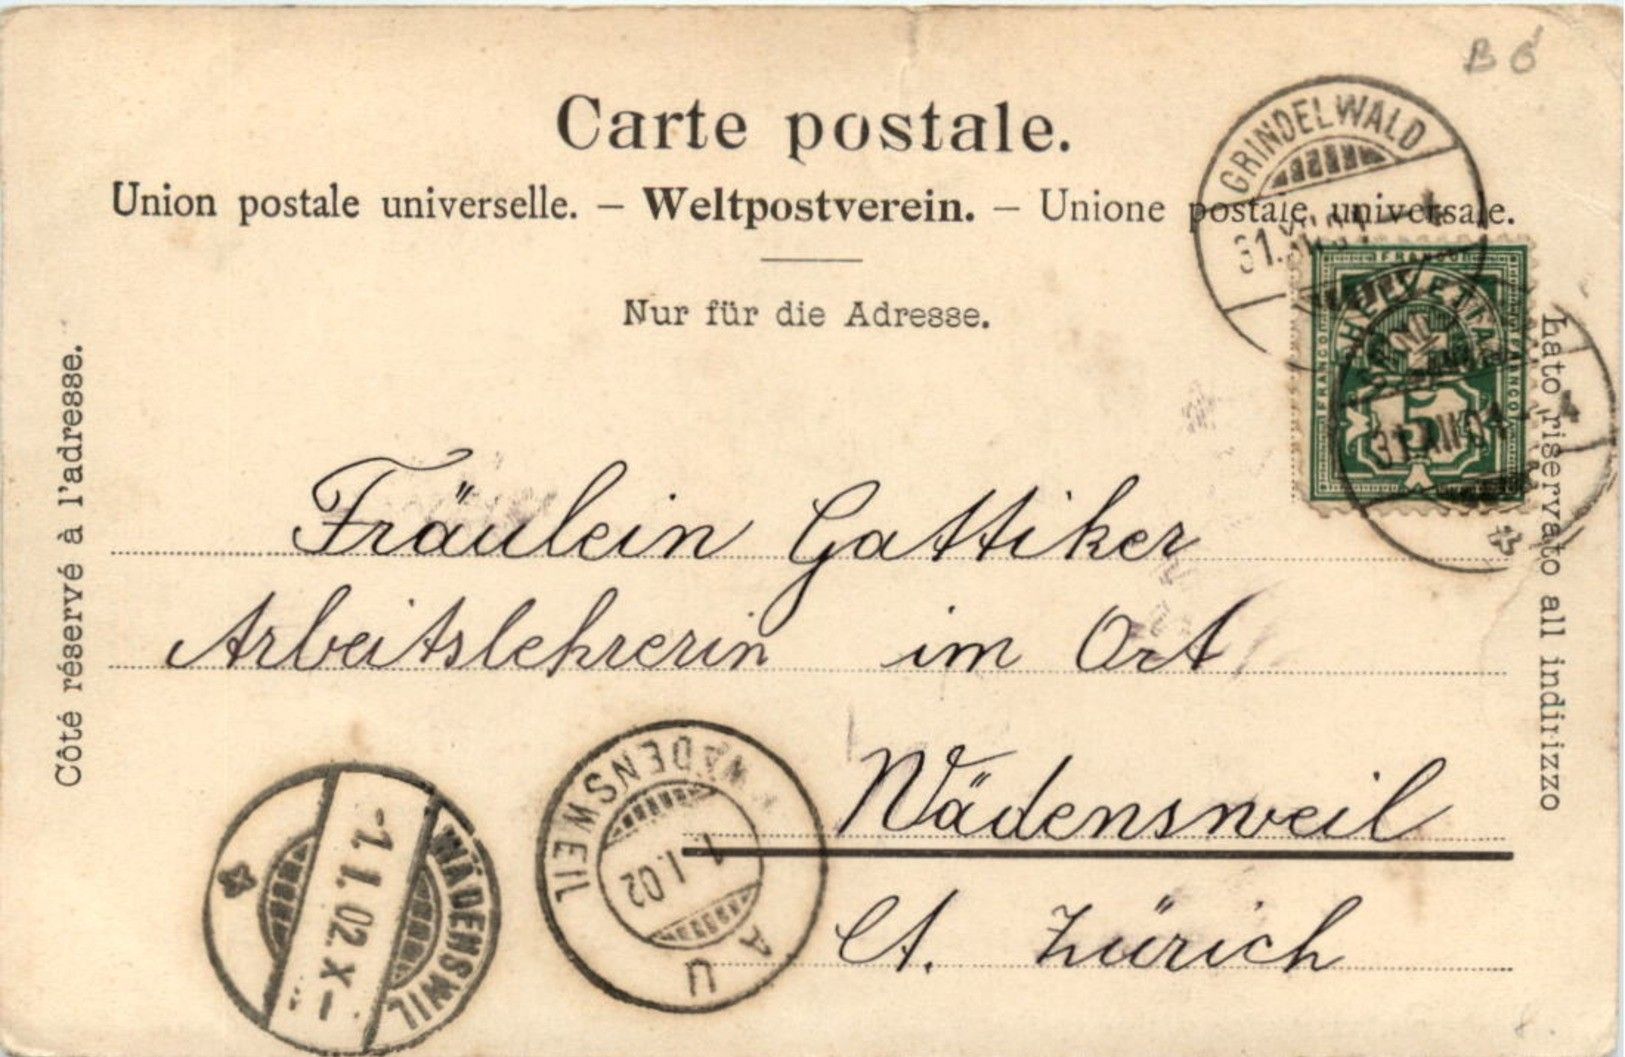 B 6
Carte postale.
Union postale universelle. – Weltpostverein. – Unione postale universale.
Nur für die Adresse.
Côté réservé à l'adresse.
Lato riservato all indirizzo
GRINDELWALD
31.XII.01
FRANCO
HELVETIA
FRANCO
FRANCO
5
GRIND
31.XII.01
Fräulein Gattiker
Arbeitslehrerin im Ort
Wädensweil
Ct. Zürich
WÄDENSWEIL
1.I.02
AU
WÄDENSWIL
-1.1.02.X-